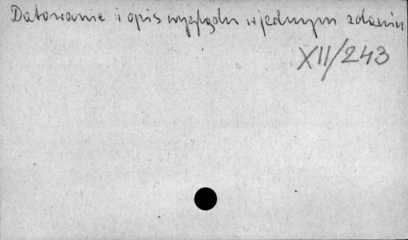 Datowanie i opis wyglądu w jednym zdaniu
XII/243